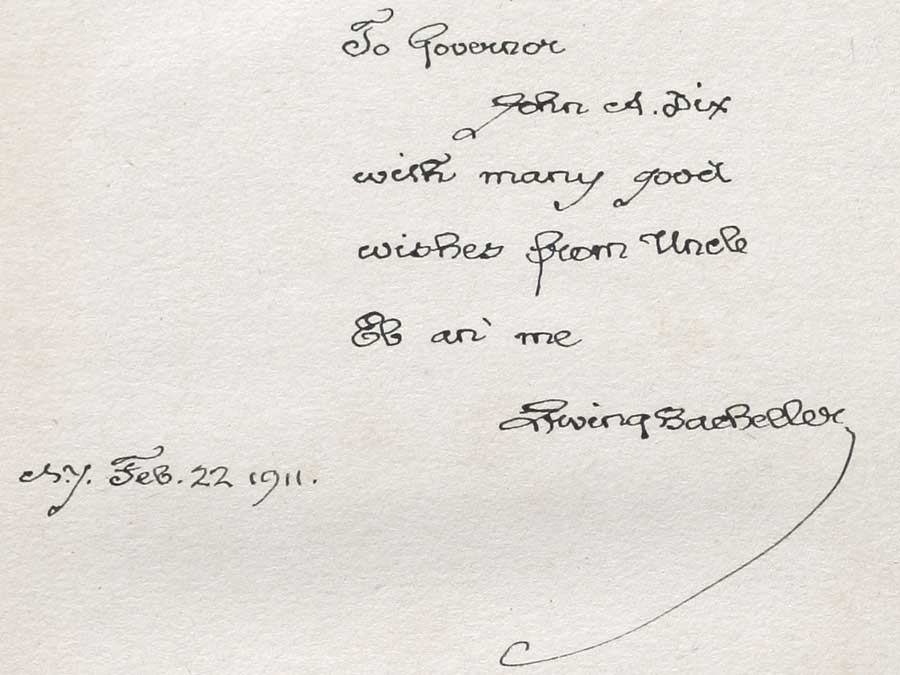 To Governor
John A. Dix
with many good
wishes from Uncle
Eb an' me
Irving Bacheller
N.Y. Feb. 22 1911.